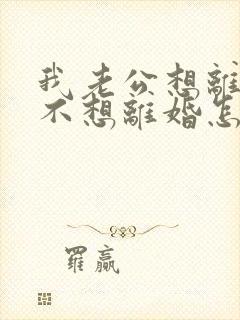 我老公想離
不想離婚怎
羅贏